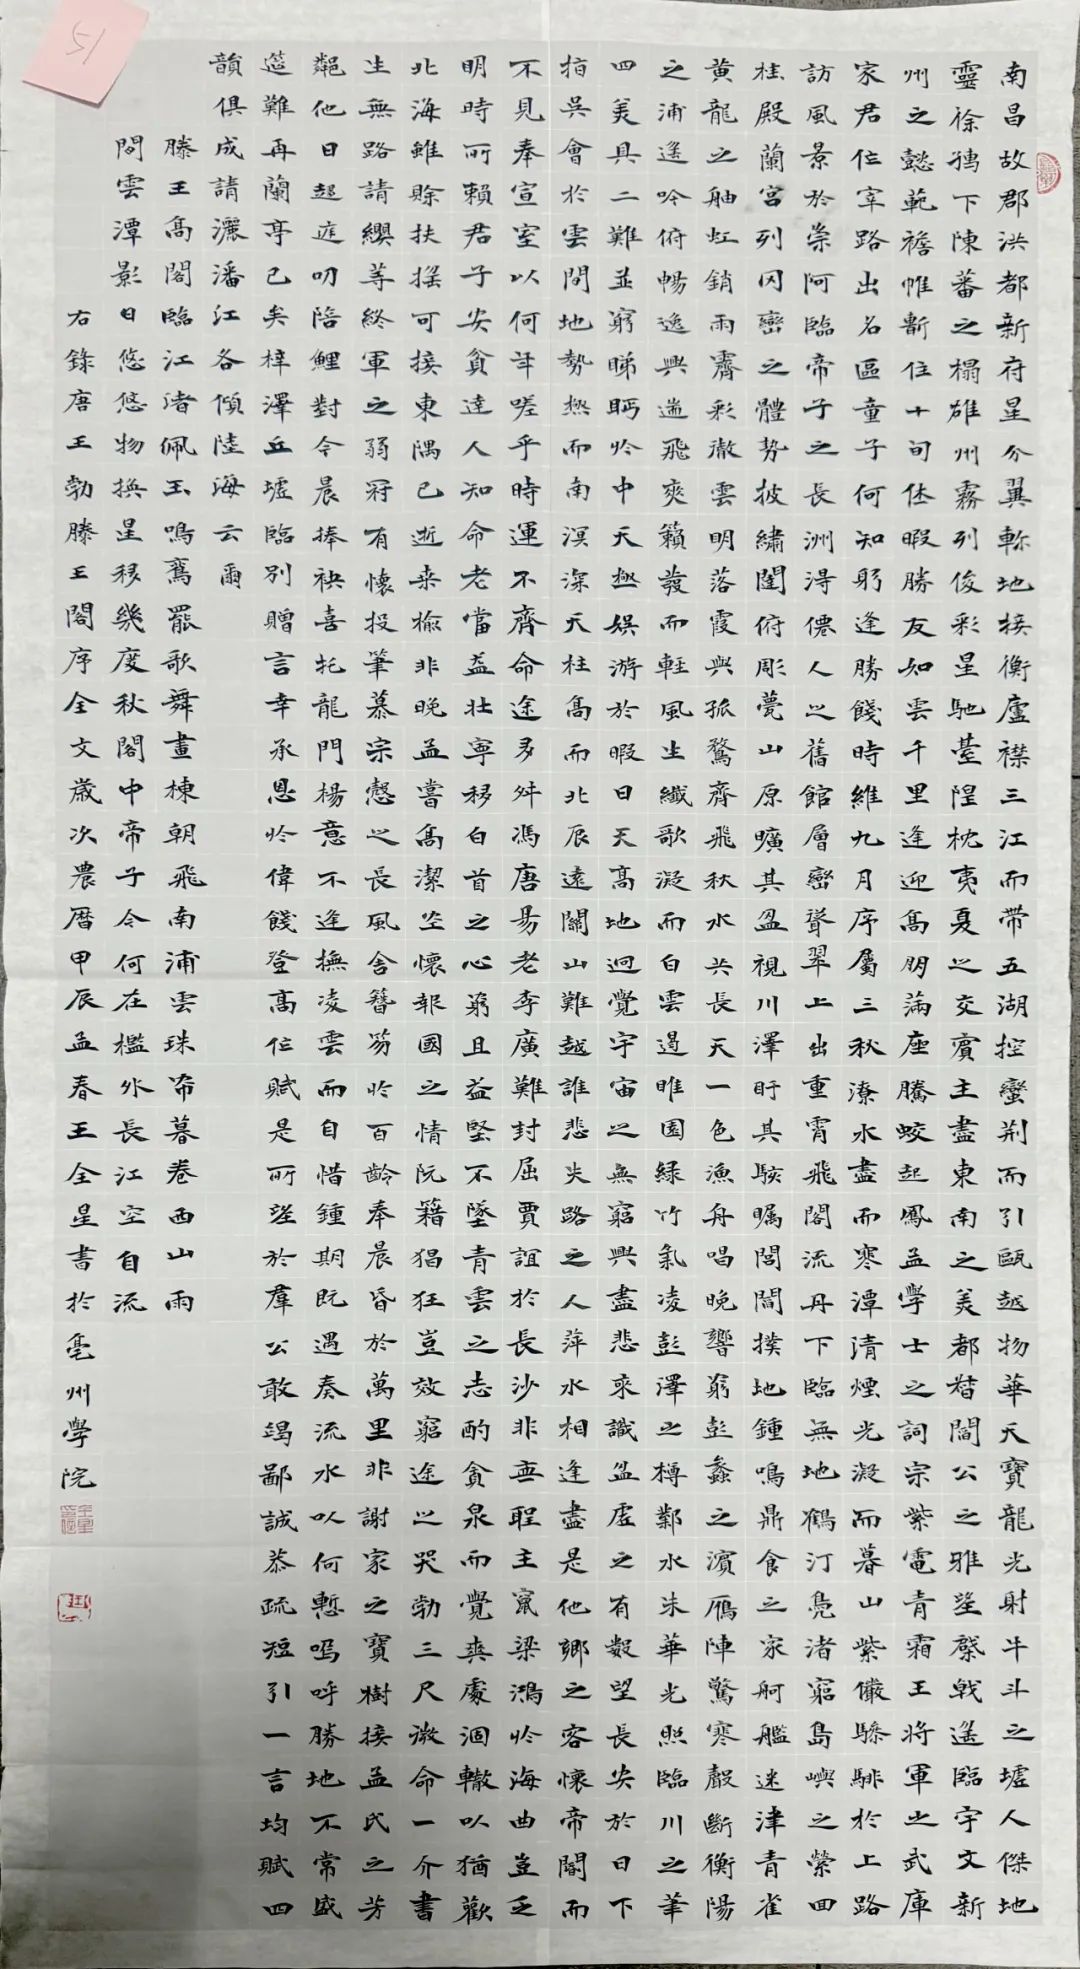 51
南昌故郡洪都新府星分翼軫地接衡廬襟三江而帶五湖控蠻荊而引甌越物華天寶龍光射牛斗之墟人傑地
靈徐孺下陳蕃之榻雄州霧列俊彩星馳臺隍枕夷夏之交賓主盡東南之美都督閻公之雅望棨戟遙臨宇文新
州之懿範襜帷暫住十旬休暇勝友如雲千里逢迎高朋滿座騰蛟起鳳孟學士之詞宗紫電青霜王將軍之武庫
家君作宰路出名區童子何知躬逢勝餞時維九月序屬三秋潦水盡而寒潭清煙光凝而暮山紫儼驂騑於上路
訪風景於崇阿臨帝子之長洲得僊人之舊館層巒聳翠上出重霄飛閣流丹下臨無地鶴汀鳧渚窮島嶼之縈回
桂殿蘭宮列岡巒之體勢披繡闥俯彫甍山原曠其盈視川澤盱其駭矚閭閻撲地鍾鳴鼎食之家舸艦迷津青雀
黃龍之舳虹銷雨霽彩徹雲明落霞與孤鶩齊飛秋水共長天一色漁舟唱晚響窮彭蠡之濱雁陣驚寒聲斷衡陽
之浦遙吟俯暢逸興遄飛爽籟發而輕風生纖歌凝而白雲遏睢園綠竹氣凌彭澤之樽鄴水朱華光照臨川之筆
四美具二難並窮睇眄於中天極娛游於暇日天高地迥覺宇宙之無窮興盡悲來識盈虛之有數望長安於日下
指吳會於雲間地勢極而南溟深天柱高而北辰遠關山難越誰悲失路之人萍水相逢盡是他鄉之客懷帝閽而
不見奉宣室以何年嗟乎時運不齊命途多舛馮唐易老李廣難封屈賈誼於長沙非無聖主竄梁鴻於海曲豈乏
明時所賴君子安貧達人知命老當益壯寧移白首之心窮且益堅不墜青雲之志酌貪泉而覺爽處涸轍以猶歡
北海雖賒扶搖可接東隅已逝桑榆非晚孟嘗高潔空懷報國之情阮籍猖狂豈效窮途之哭勃三尺微命一介書
生無路請纓等終軍之弱冠有懷投筆慕宗愨之長風舍簪笏於百齡奉晨昏於萬里非謝家之寶樹接孟氏之芳
鄰他日趨庭叨陪鯉對今晨捧袂喜托龍門楊意不逢撫凌雲而自惜鍾期既遇奏流水以何慙嗚呼勝地不常盛
筵難再蘭亭已矣梓澤丘墟臨別贈言幸承恩於偉餞登高作賦是所望於羣公敢竭鄙誠恭疏短引一言均賦四
韻俱成請灑潘江各傾陸海云爾
滕王高閣臨江渚佩玉鳴鸞罷歌舞畫棟朝飛南浦雲珠帘暮卷西山雨
閒雲潭影日悠悠物換星移幾度秋閣中帝子今何在檻外長江空自流
右錄唐王勃滕王閣序全文歲次農曆甲辰孟春王全星書於亳州學院